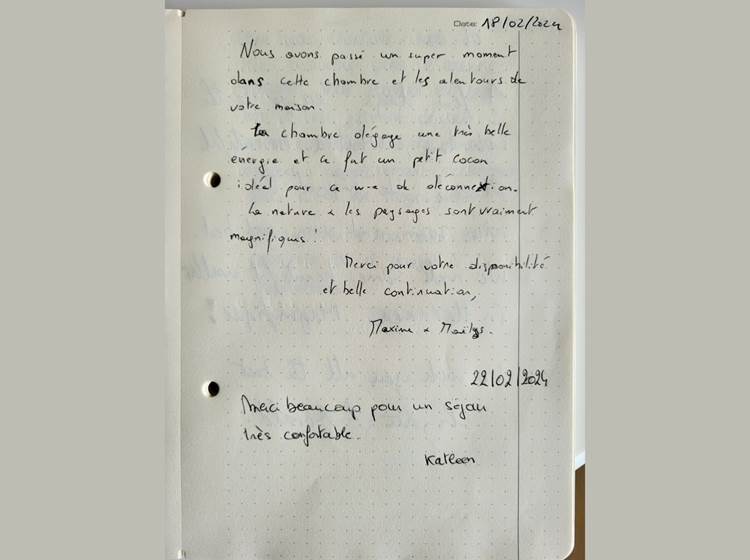 Date: 18/02/2024
Nous avons passé un super moment
dans cette chambre et les alentours de
votre maison.
La chambre dégage une très belle
énergie et ce fut un petit cocon
idéal pour ce w-e de déconnextion.
La nature & les paysages sont vraiment
magnifiques!
Merci pour votre disponibilité
et belle continuation,
Maxime & Maëlys.
22/02/2024
Merci beaucoup pour un séjour
très confortable.
Katleen